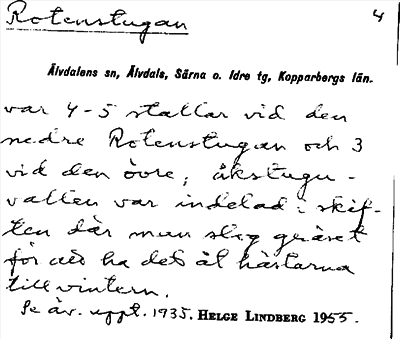 Rotenstugan
4
Älvdalens sn, Älvdals, Särna o. Idre tg, Kopparbergs län.
var 4-5 stallar vid den
nedre Rotenstugan och 3
vid den övre; åkstugu-
vallen var indelad i skif-
ten där man slog gräset
för att ha det åt hästarna
till vintern.
Se äv. uppt. 1935. HELGE LINDBERG 1955.